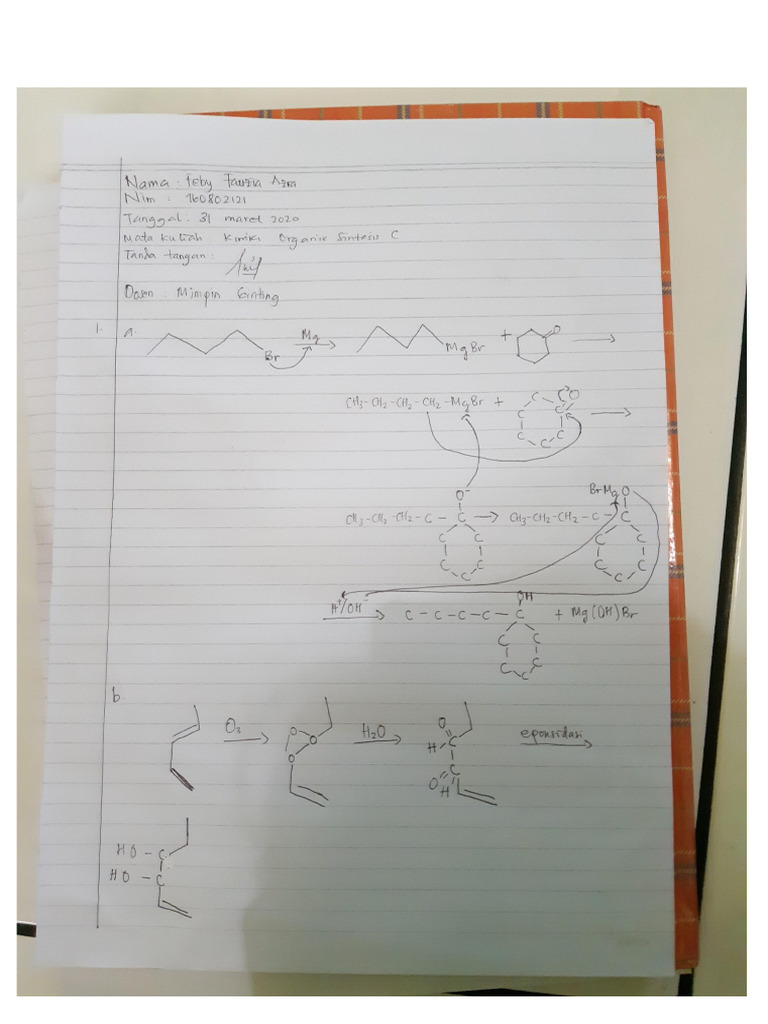 Nama : Feby Fauzia Azra
Nim : 160802121
Tanggal : 31 maret 2020
Mata kuliah Kimia Organik Sintesis C
Tanda tangan :
Dosen : Mimpin Ginting
1. a. Br Mg → MgBr + O →
CH3-CH2-CH2-CH2-MgBr + C C C C C C O →
O⁻ BrMg O
CH3-CH2-CH2-C-C → CH3-CH2-CH2-C-C
C C C C C C C C C C
H⁺/OH⁻ → C-C-C-C-C OH + Mg(OH)Br
C C C C C
b.
O3 → O O O H2O → O H C C O H eponsidasi →
HO-C
HO-C